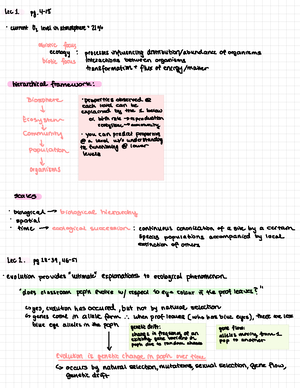 Lec 1. pg. 4-15
• current O₂ level in atmosphere = 21%
abiotic focus
biotic focus
ecology : processes influencing distribution/abundance of organisms
interactions between organisms
transformation + flux of energy/matter
hierarchical framework:
Biosphere
↓
Ecosystem
↓
Community
↓
Population
↓
organisms
• properties observed @
each level can be
explained by the & below
• you can predict
@ a level w/o understanding
its functioning @ lower
levels
scales
• biological → biological hierarchy
• spatial
• time → ecological succession : continuous colonization of a site by a certain
species populations accompanied by local
extinction of others
Lec 2. pg 28-39, 46-51
• evolution provides "ultimate" explanations to ecological phenomenon
"does classroom popln evolve w/ respect to eye colour if the prof leaves?"
↳ yes, evolution has occurred, but not by natural selection
↳ genes come in allelic form ∴ when prof leaves (who has blue eyes), there are less
blue eye alleles in the popln
genetic drift:
change in frequency of an
existing gene variant in
popln due to random chance
gene flow:
alleles moving from 1
pop to another
Evolution is genetic change in popln over time
↳ occurs by natural selection, mutations, sexual selection, gene flow,
genetic drift